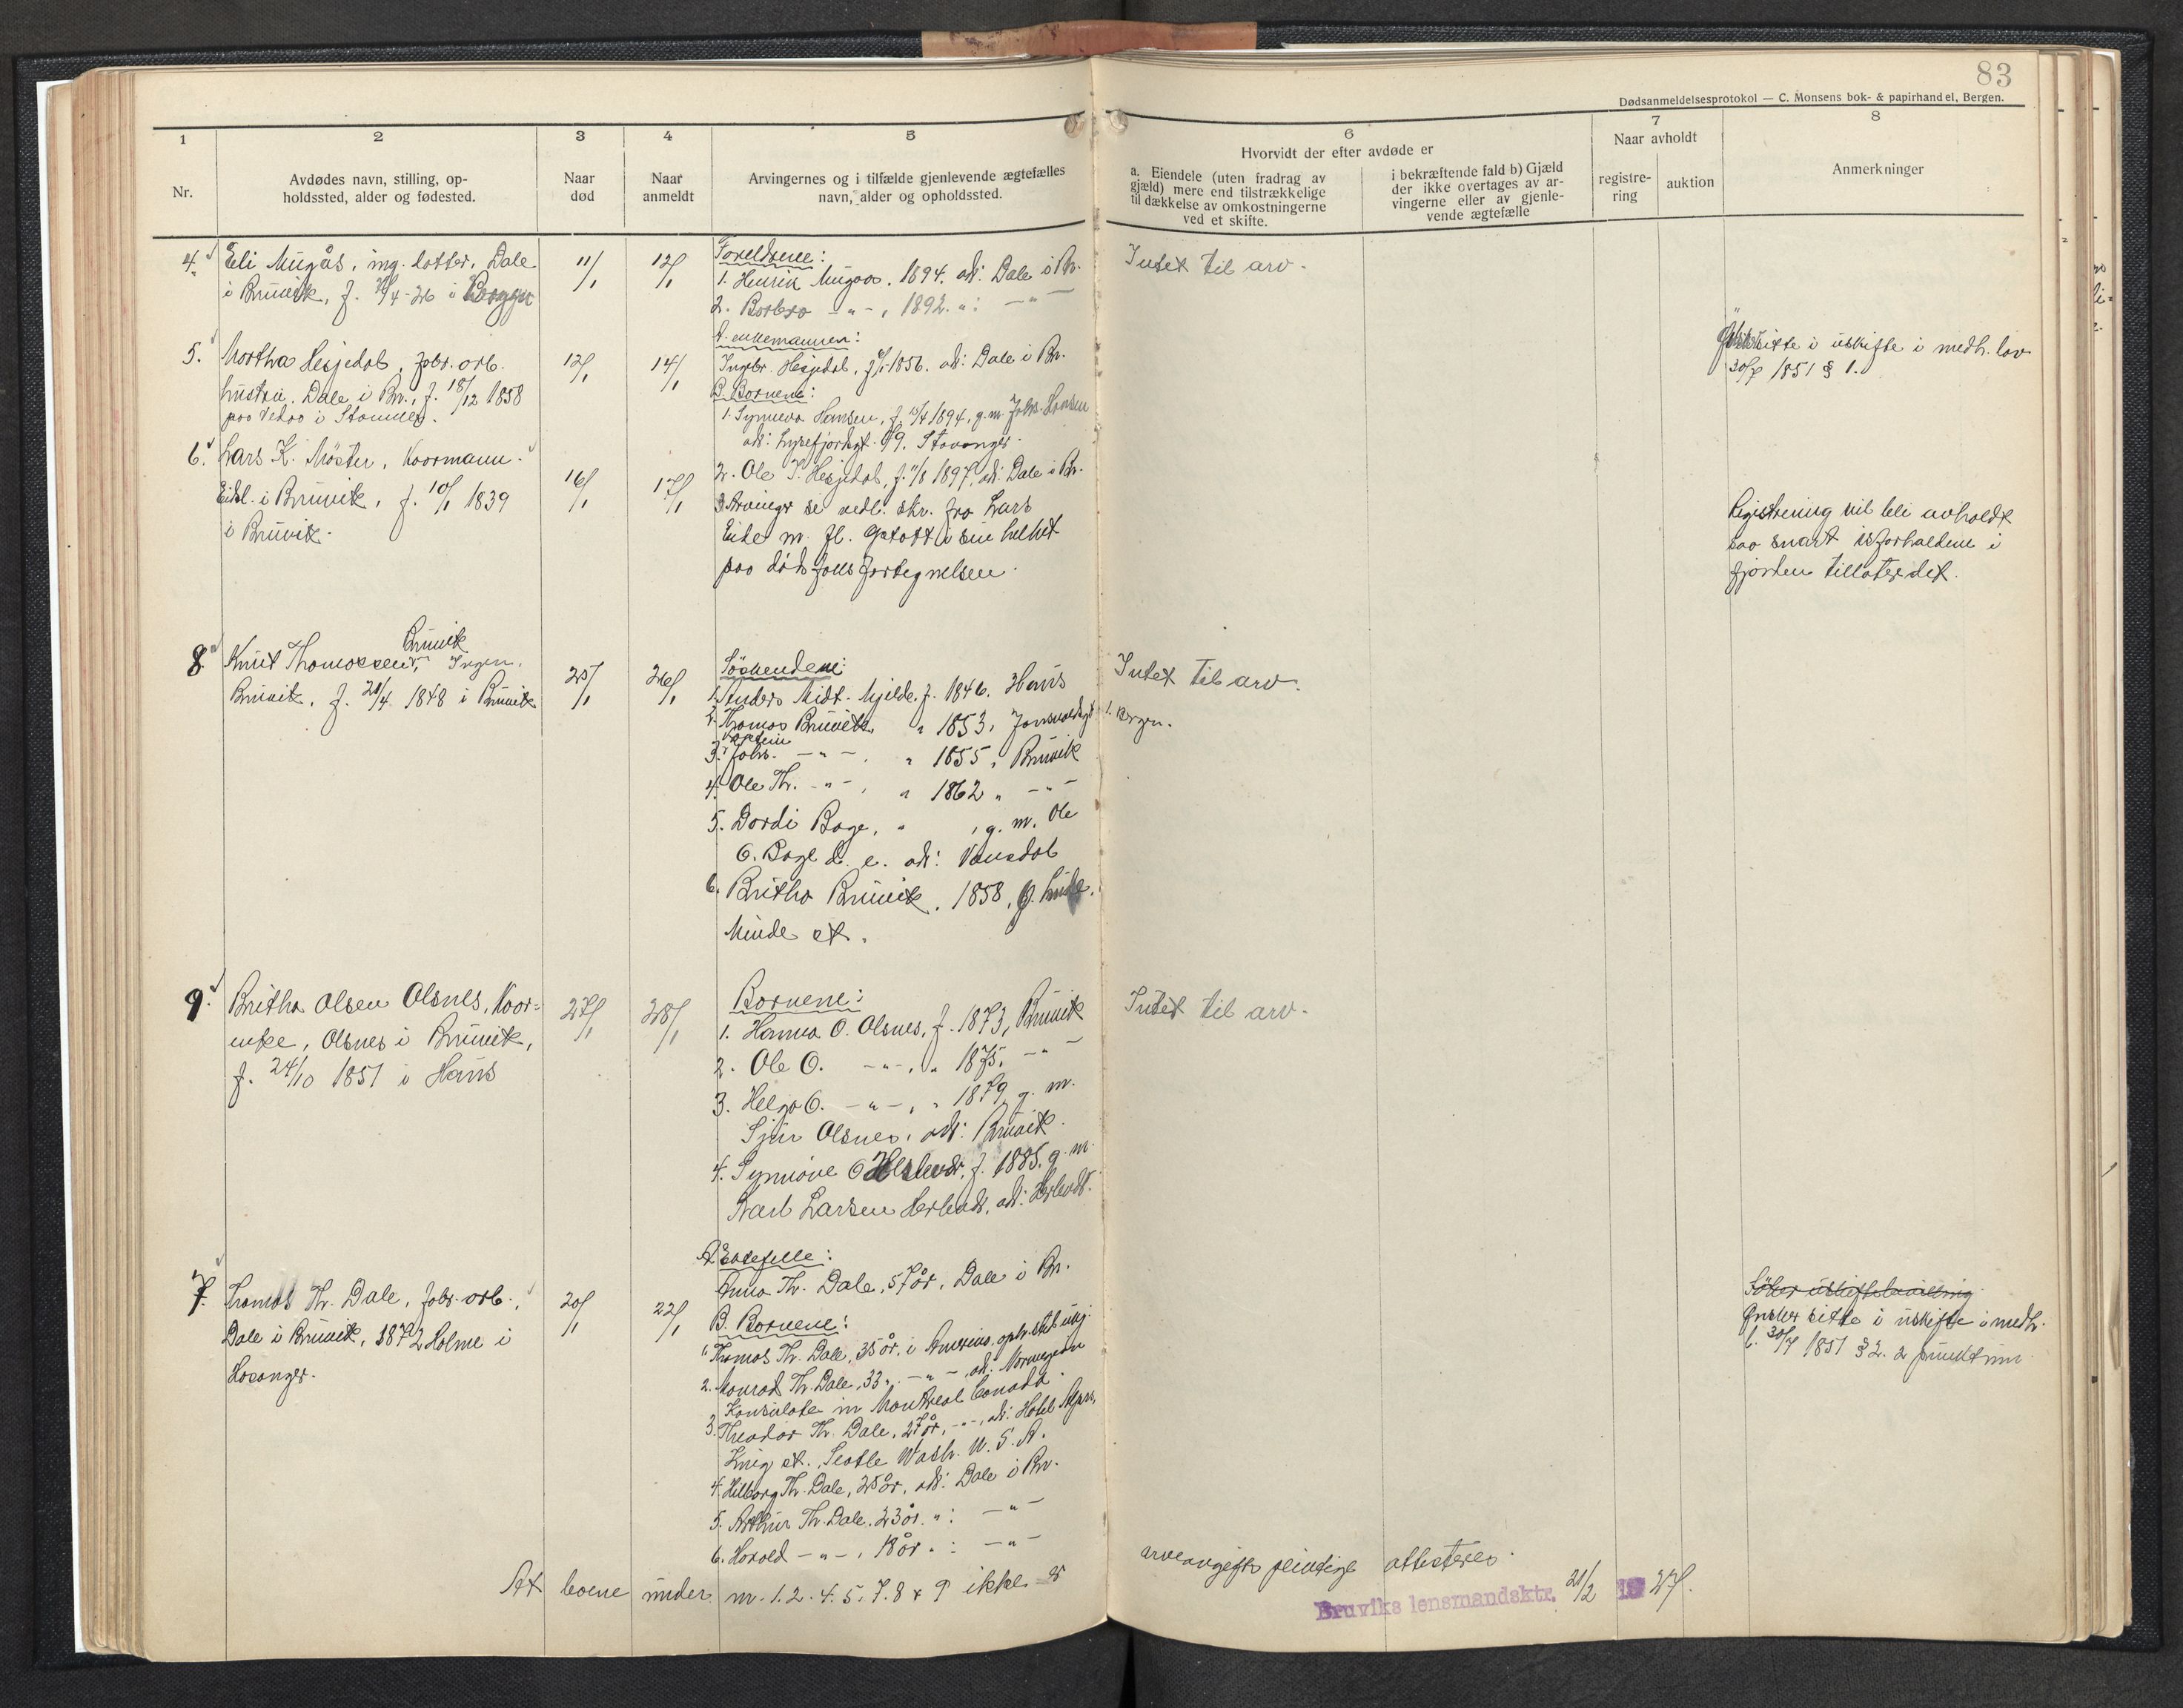 83
Dødsanmeldelsesprotokol — C. Monsens bok- & papirhandel, Bergen.
1
2
3
4
5
6
7
8
Nr.
Avdødes navn, stilling, op-
holdssted, alder og fødested.
Naar
død
Naar
anmeldt
Arvingernes og i tilfælde gjenlevende ægtefælles
navn, alder og opholdssted.
Hvorvidt der efter avdøde er
a. Eiendele (uten fradrag av
gjæld) mere end tilstrækkelige
til dækkelse av omkostningerne
ved et skifte.
i bekræftende fald b) Gjæld
der ikke overtages av ar-
vingerne eller av gjenle-
vende ægtefælle
Naar avholdt
registre-
ring
auktion
Anmerkninger
4. Eli Mügås, ug. datter, Dale
i Brüvik, f. /4-26 i Bergen
11/1
12/1
Foreldrene:
1. Henrik Mügaas. 1894. adr: Dale i Br.
2. Barbra -"-, 1892. ": -"-
Intet til arv.
5. Martha Hesjedal, fabr. arb.
hüstrü, Dale i Br., f. 18/12 1858
paa Vedaa i Stamnes.
12/1
14/1
A. enkemannen:
Ingebr. Hesjedal, f. 1856. adr: Dale i Br.
B. Barnene:
1. Synneva Hansen, f. 15/4 1894, g.m. Johs. Hansen
adr: Lysefjordsgt. 49. Stavanger.
2. Ole I. Hesjedal, f. 11/8 1897, adr: Dale i Br.
sitte i üskifte i medh. lov
30/7 1851 § 1.
6. Lars K. Møster, Kaarmann.
Eidsl. i Brüvik, f. 10/1 1839
i Brüvik.
16/1
17/1
Arvinger se vedl. skr. fra Lars
Eide m. fl. i sin helhet
paa dødsfallsfortegnelsen.
Registrering vil bli avholdt
saa snart isforholdene i
fjorden tillater det.
8. Knüt Thomassen Brüvik, Ingen.
Brüvik, f. 21/4. 1848 i Brüvik
25/1
26/1
Søskendene:
1. Anders Midt-Mjelde. f. 1846. Haüs
2. Thomas Brüvik, " 1853, Jonsvoldsgt 1. Bergen.
3. Johs. -"-, " 1855, Brüvik
4. Ole Th. -"-, " 1862 " -"-
5. Dordi Boge, " , g. m. Ole
O. Boge d. e. adr: Vaksdal
6. Britha Brüvik. 1858,
Minde st.
Intet til arv.
9. Britha Olsen Olsnes, Kaar-
enke, Olsnes i Brüvik,
f. 24/10 1851 i Haüs
27/1
28/1
Barnene:
1. Hanna O. Olsnes, f. 1873, Brüvik
2. Ole O. -"-, " 1875, -"-
3. Helga O. -"-, " 1879 g. m.
Sjür Olsnes, adr: Brüvik.
4. Synnøve O Herlandr, f. 1885. g. m.
Karl Larsen Herland, adr: Herland.
Intet til arv.
7. Thomas Th. Dale, fabr. arb.,
Dale i Brüvik, 1872 Holme i
Hosanger.
20/1
22/1
A. Ektefelle:
Anna Th. Dale, 57 år, Dale i Br.
B. Barnene:
1. Thomas Th. Dale, 35 år, i Amerika. oph. sted ukj.
2. Konrad Th. Dale, 33 ", -"-, adr: Norwegian
Konsulate in Montreal Canada.
3. Theodor Th. Dale, 27 år, -"-, adr: Hotel
King st., Seatle Wash. U. S. A.
4. Hilborg Th. Dale, 25 år, adr: Dale i Br.
5. Arthur Th. Dale. 23 år. ": -"-
6. Harald -"-, 18 år ": -"-
Søker üskiftebevilling
Ønsker sitte i üskifte i medh.
l. 30/7 1851 § 2. 2 punktum
At boene ünder nr. 1. 2. 4. 5. 7. 8 & 9 ikke er arveavgifts pliktige attesteres.
Bruviks lensmandsktr. 21/2 1927.